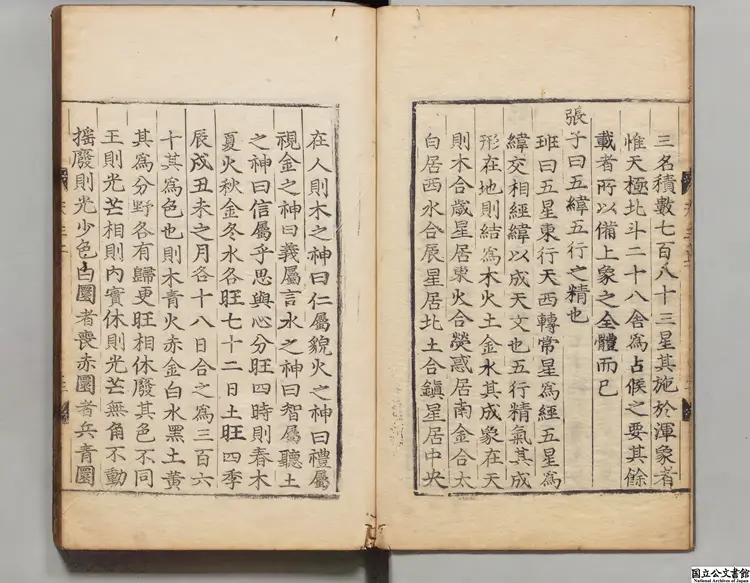 三名積數七百八十三星其施於渾象者
惟天極北斗二十八舍爲占候之要其餘
載者所以備上象之全體而已
張子曰五緯五行之精也
班曰五星東行天西轉常星爲經五星爲
緯交相經緯以成天文也五行精氣其成
形在地則結爲木火土金水其成象在天
則木合歲星居東火合熒惑居南金合太
白居西水合辰星居北土合鎭星居中央
在人則木之神曰仁屬貌火之神曰禮屬
視金之神曰義屬言水之神曰智屬聽土
之神曰信屬乎思與心分旺四時則春木
夏火秋金冬水各旺七十二日土旺四季
辰戌丑未之月各十八日合之爲三百六
十其爲色也則木青火赤金白水黑土黃
其爲分野各有歸更旺相休廢其色不同
王則光芒相則內實休則光芒無角不動
摇廢則光少色白圜者喪赤圜者兵青圜
国立公文書館
National Archives of Japan